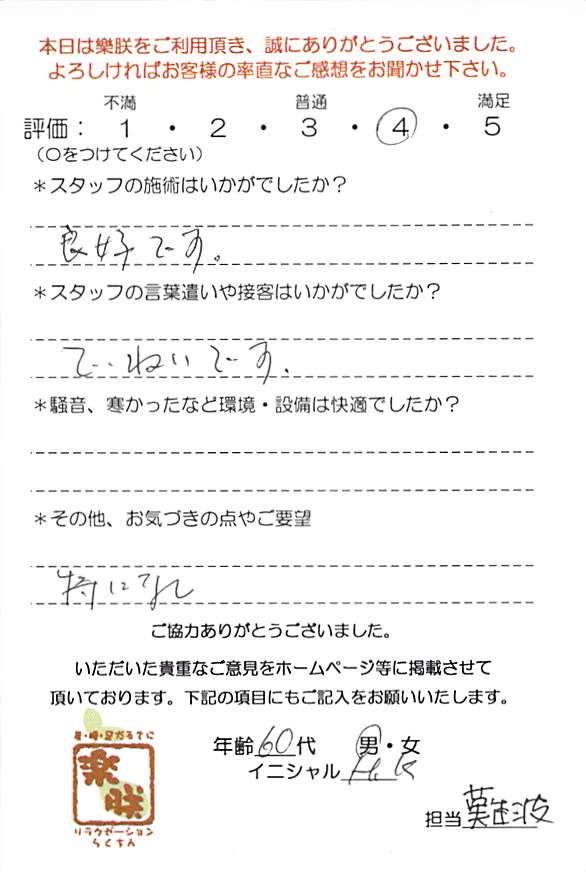 本日は樂朕をご利用頂き、誠にありがとうございました。
よろしければお客様の率直なご感想をお聞かせ下さい。
不満 普通 満足
評価： 1 ・ 2 ・ 3 ・ 4 ・ 5
（○をつけてください）
＊スタッフの施術はいかがでしたか？
良好です。
＊スタッフの言葉遣いや接客はいかがでしたか？
ていねいです．
＊騒音、寒かったなど環境・設備は快適でしたか？
＊その他、お気づきの点やご要望
特になし
ご協力ありがとうございました。
いただいた貴重なご意見をホームページ等に掲載させて
頂いております。下記の項目にもご記入をお願いいたします。
年齢 60 代 男・女
イニシャル H.K
担当
樂
朕
リラクゼーション
らくちん